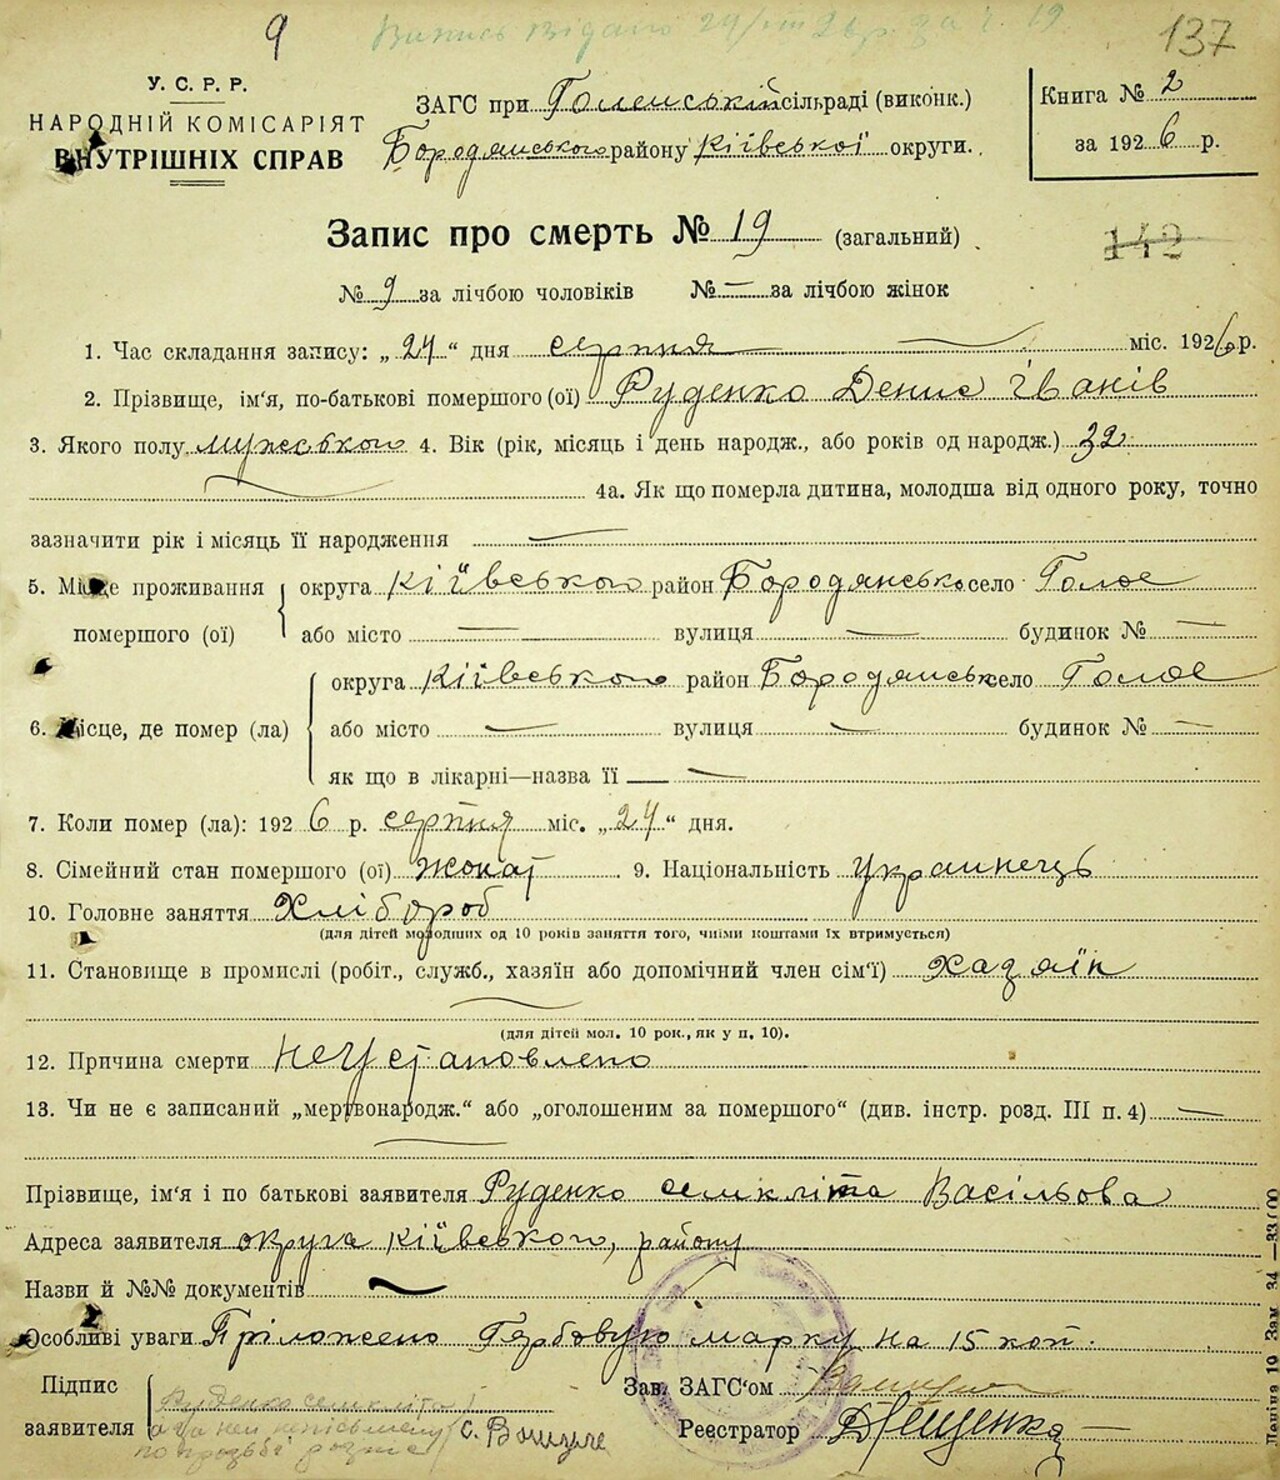 9
Випись видано 29/VIII 26 р. за ч. 19.
137
У. С. Р. Р.
НАРОДНІЙ КОМІСАРІЯТ
ВНУТРІШНІХ СПРАВ
ЗАГС при Голенській сільраді (виконк.)
Бородянського району Кіївської округи.
Книга № 2
за 1926 р.
Запис про смерть № 19 (загальний)
142
№ 9 за лічбою чоловіків № — за лічбою жінок
1. Час складання запису: „24“ дня серпня — міс. 1926 р.
2. Прізвище, ім'я, по-батькові помершого (ої) Руденко Денис Іванів
3. Якого полу мужського 4. Вік (рік, місяць і день народж., або років од народж.) 32
4а. Як що померла дитина, молодша від одного року, точно
зазначити рік і місяць її народження —
5. Місце проживання помершого (ої) округа Кіївського район Бородянсько село Голое
або місто — вулиця — будинок № —
6. Місце, де помер (ла) округа Кіївського район Бородянськ село Голое
або місто — вулиця — будинок № —
як що в лікарні—назва її —
7. Коли помер (ла): 1926 р. серпня міс. „24“ дня.
8. Сімейний стан помершого (ої) жонат. 9. Національність Украинець
10. Головне заняття Хлібороб
(для дітей молодших од 10 років заняття того, чиїми коштами їх втримується)
11. Становище в промислі (робіт., служб., хазяїн або допомічний член сім'ї) Хазяїн
(для дітей мол. 10 рок., як у п. 10).
12. Причина смерти Неустановлено
13. Чи не є записаний „мертвонародж.“ або „оголошеним за помершого“ (див. інстр. розд. III п. 4) —
Прізвище, ім'я і по батькові заявителя Руденко Семкліта Васільова
Адреса заявителя округа Кіївського, району
Назви й №№ документів —
Особливі уваги Приложено Гербовую марку на 15 коп.
Підпис заявителя Руденко Семкліта
а за неї неписьмену
по прозьбі
с.
Зав. ЗАГС'ом
Реєстратор